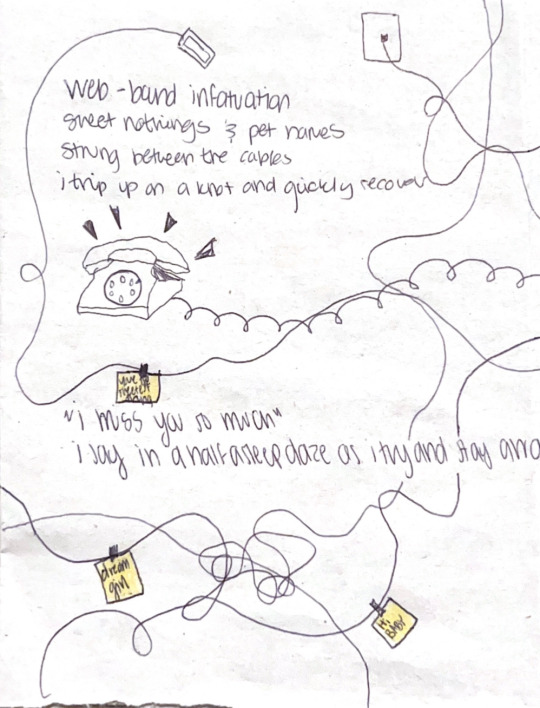 web-bound infatuation
sweet nothings & pet names
strung between the cables
i trip up on a knot and quickly recover
"i miss you so much"
i say in a half asleep daze as i try and stay awa
dream
girl
Hi
BABY